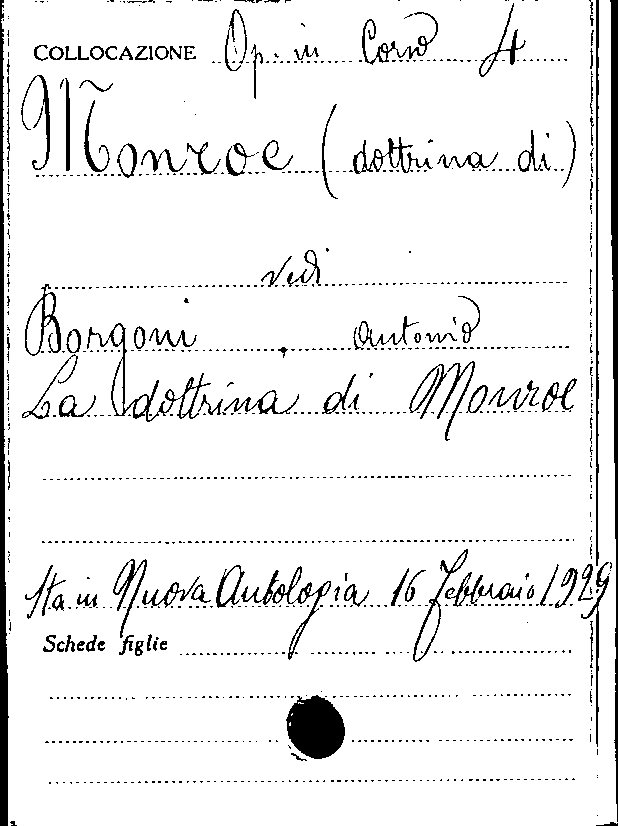 COLLOCAZIONE Op. in Corso 4
Monroe (dottrina di)
vedi
Borgoni, Antonio
La dottrina di Monroe
Sta in Nuova Antologia 16 Febbraio 1929
Schede figlie